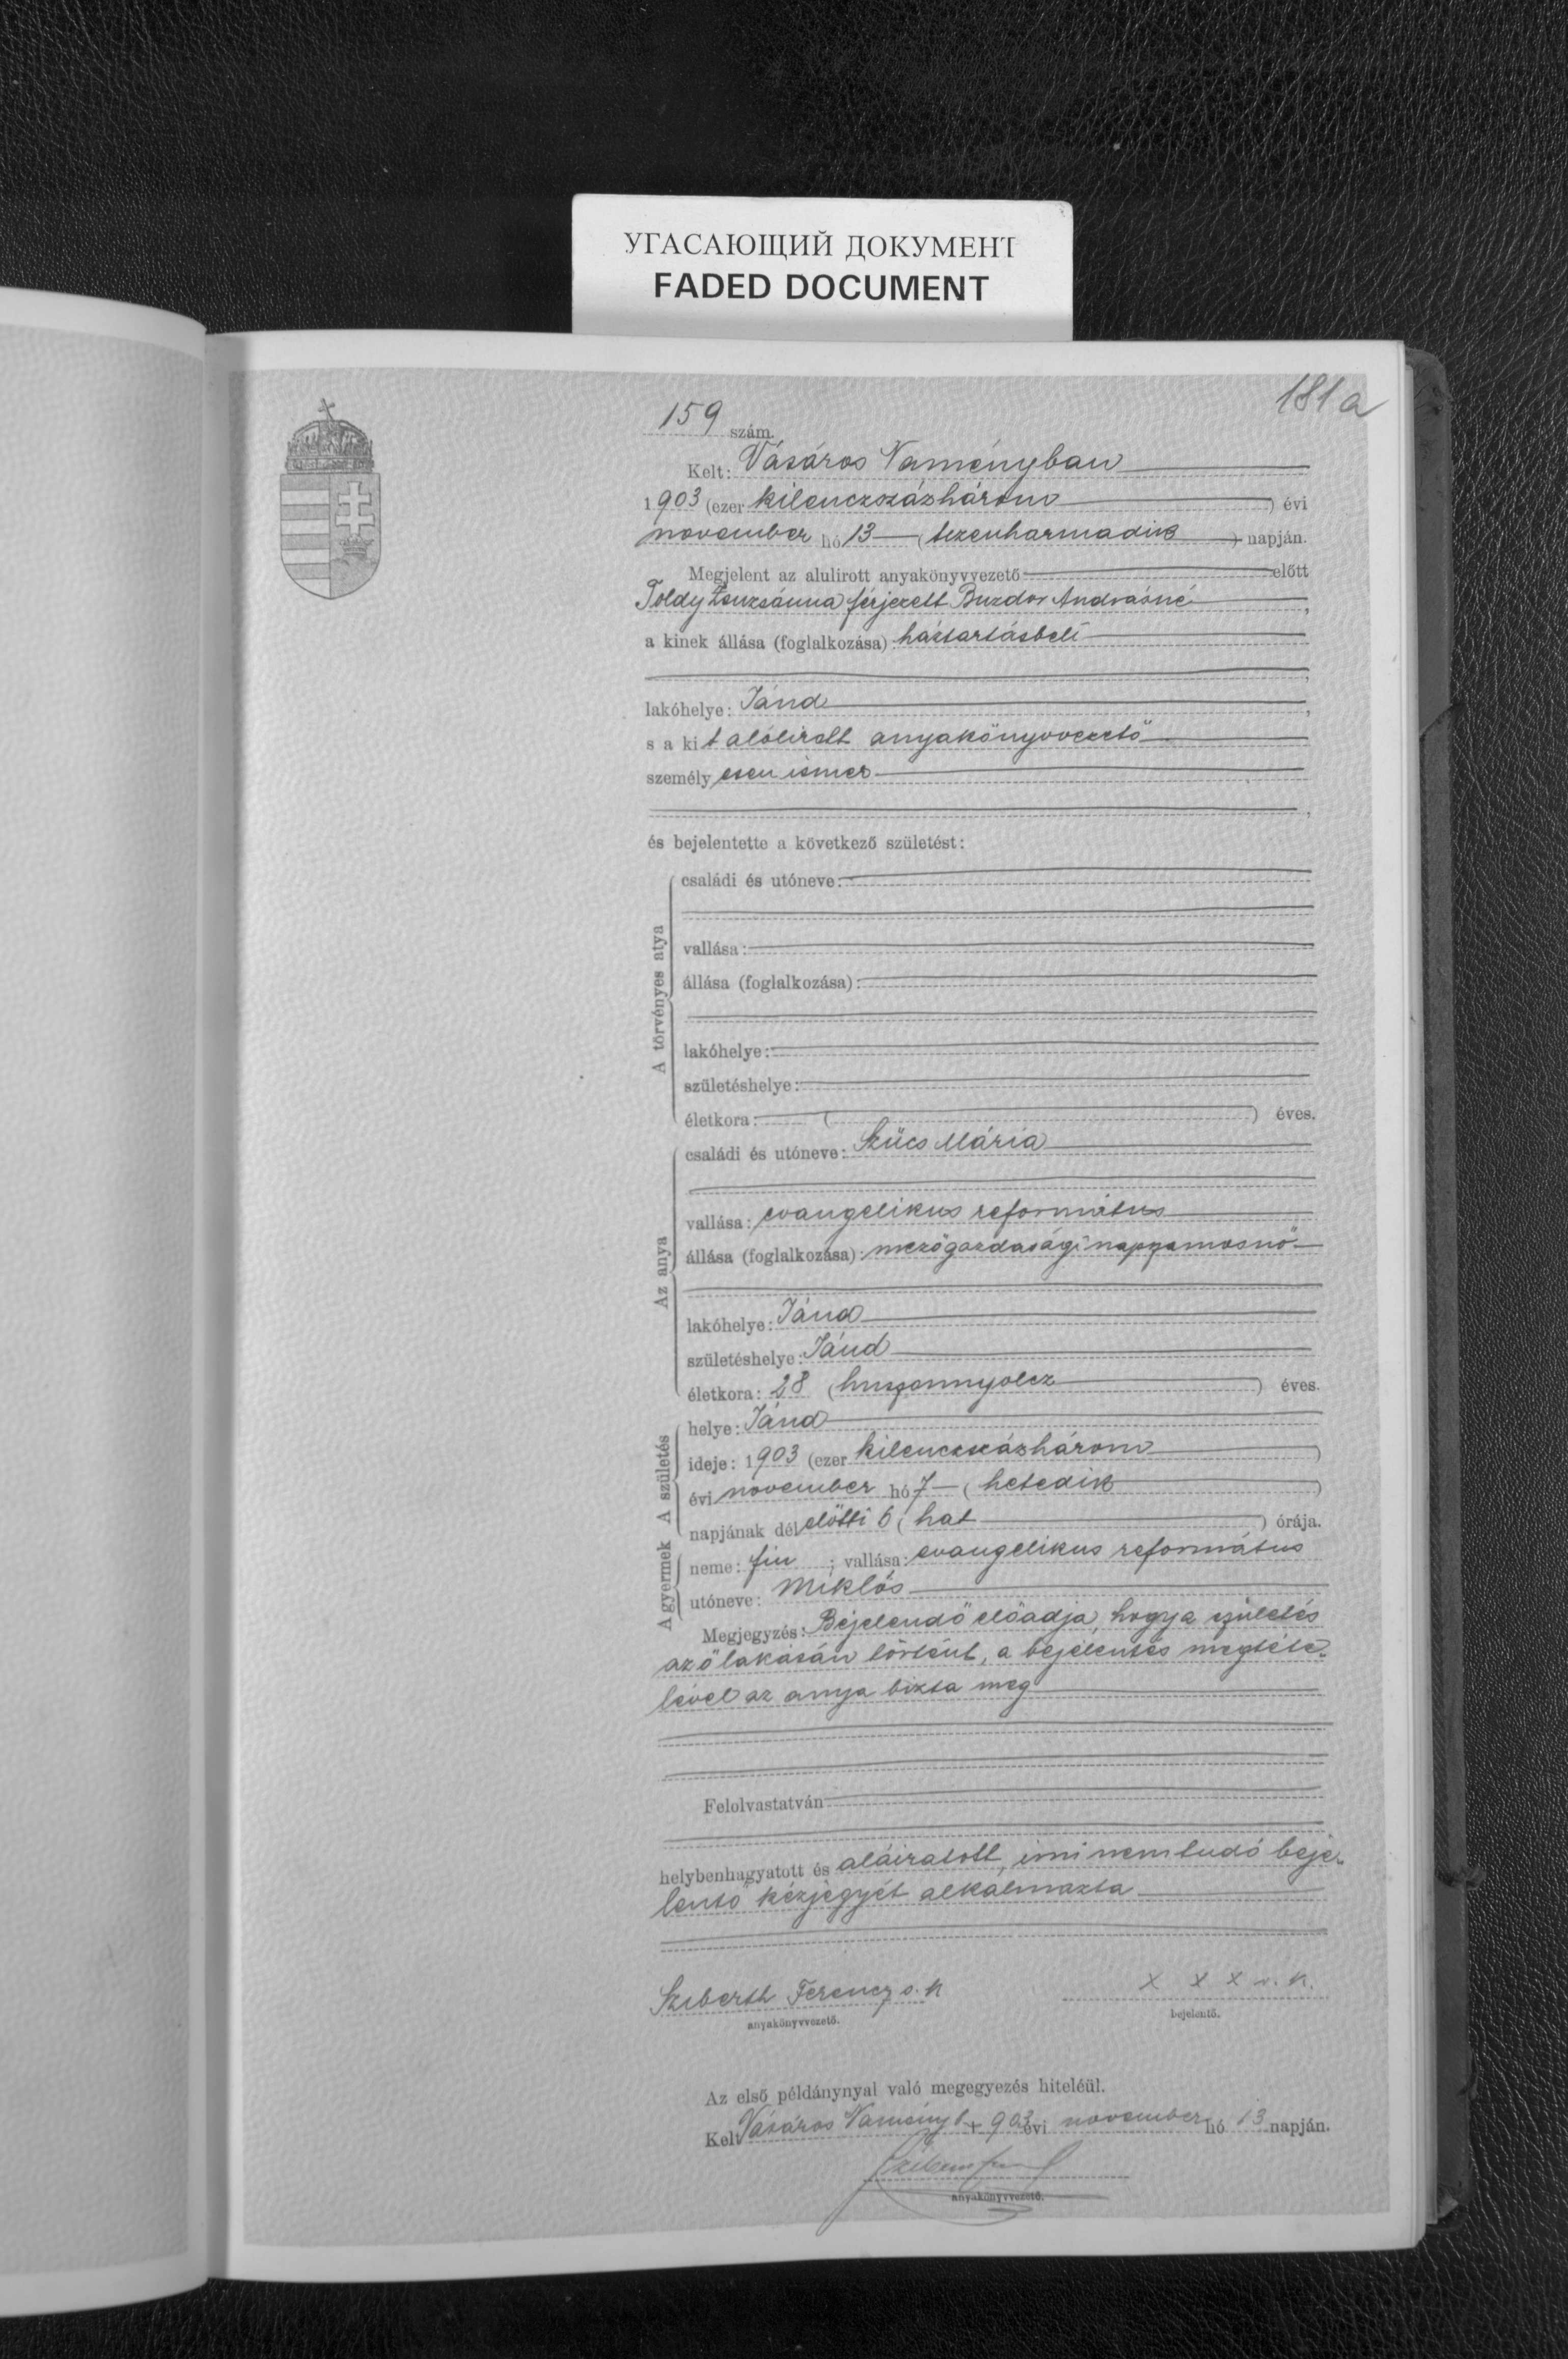 УГАСАЮЩИЙ ДОКУМЕНТ
FADED DOCUMENT
181a
159 szám.
Kelt: Vásáros Naményban
1903 (ezer kilenczszázhárom) évi
november hó 13 (tizenharmadik) napján.
Megjelent az alulirott anyakönyvvezető előtt
Toldy Zsuzsánna férjezett Buzdor Andrásné,
a kinek állása (foglalkozása): háztartásbeli
lakóhelye: Jánd,
s a kit alólirott anyakönyvvezető
személyesen ismer,
és bejelentette a következő születést:
A törvényes atya
családi és utóneve:
vallása:
állása (foglalkozása):
lakóhelye:
születéshelye:
életkora: ( ) éves.
Az anya
családi és utóneve: Szücs Mária
vallása: evangelikus református
állása (foglalkozása): mezőgazdasági napszamosnő
lakóhelye: Jánd
születéshelye: Jánd
életkora: 28 (huszonnyolcz) éves.
A születés
helye: Jánd
ideje: 1903 (ezer kilenczszázhárom)
évi november hó 7 (hetedik)
napjának délelőtti 6 (hat) órája.
A gyermek
neme: fiu; vallása: evangelikus református
utóneve: Miklós
Megjegyzés: Bejelendő előadja, hogy a születés
az ő lakásán történt, a bejelentés megtéte-
lével az anya bizta meg
Felolvastatván
helybenhagyatott és aláiratott, irni nem tudó beje-
lentő kézjegyét alkalmazta
Sziberth Ferencz s. k
anyakönyvvezető.
x x x s. k.
bejelentő.
Az első példánynyal való megegyezés hiteléül.
Kelt Vásáros Naményb 1903 évi november hó 13 napján.
anyakönyvvezető.